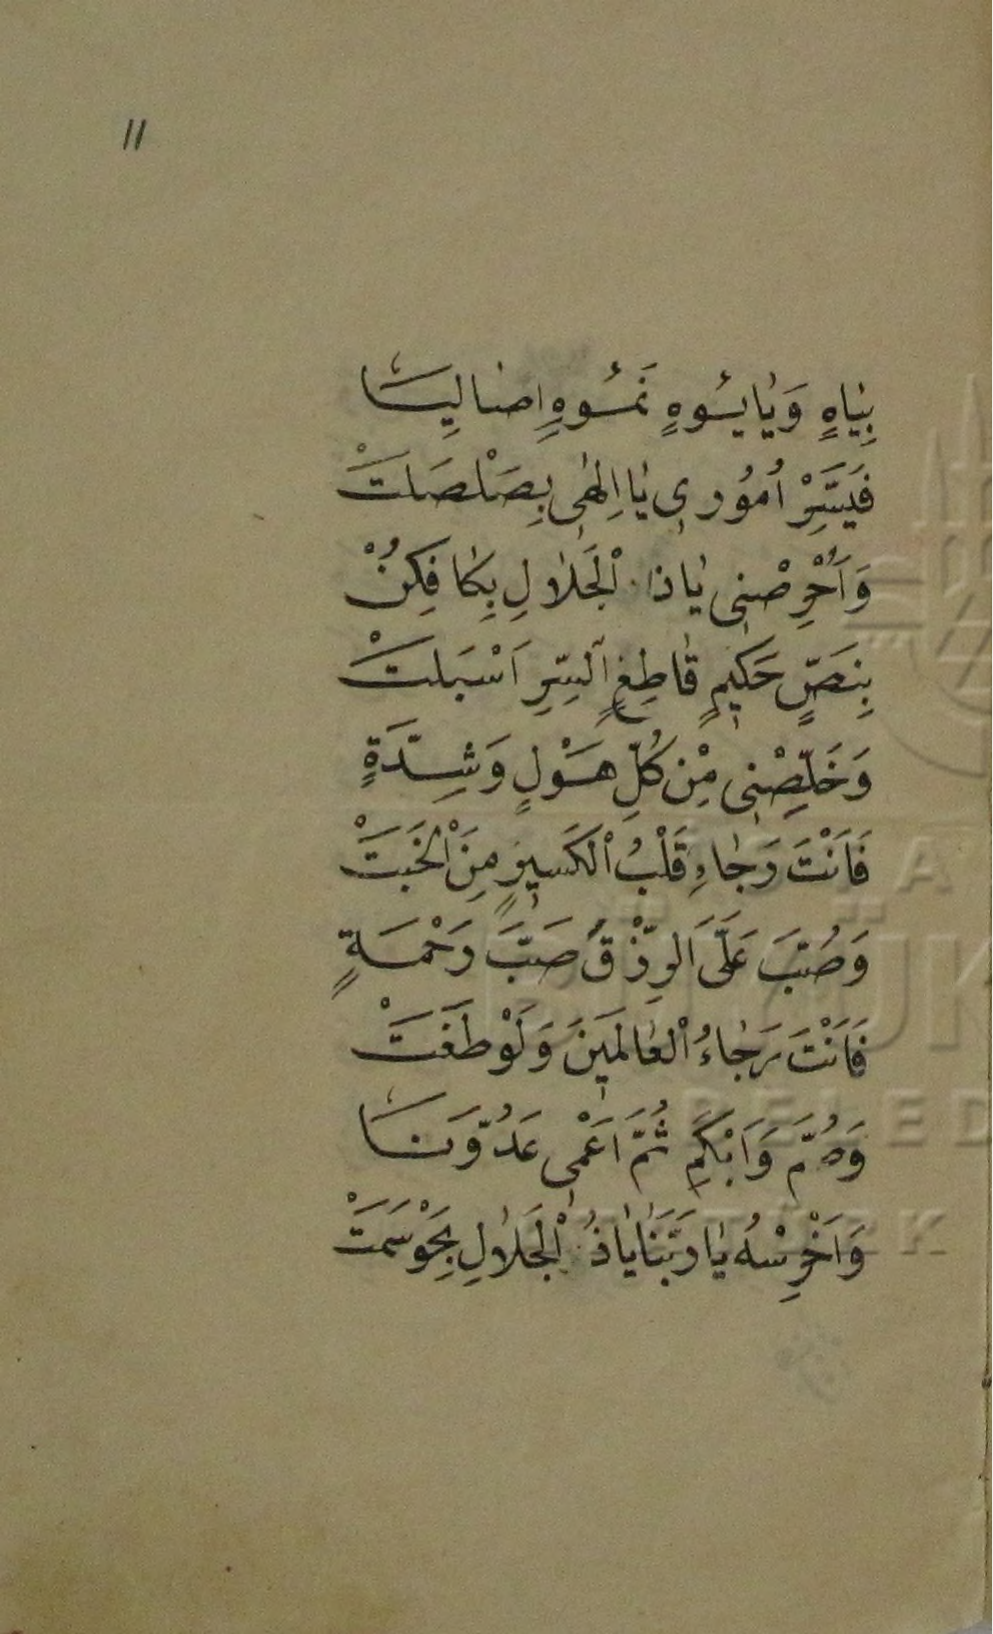 11
بِيَاهٍ وَيَا يَئُوهٍ نَمُئُوهٍ اِصَالِيًا
فَيَسِّرْ اُمُوُرِى يَا اِلٰهِى بِصَلْصَلَتْ
وَاَحْرِصْنِى يَاذَا الْجَلَالِ بِكَافِكُنْ
بِنَصٍّ حَكِيمٍ قَاطِعِ السِّرِ اَسْبَلَتْ
وَخَلِّصْنِى مِنْ كُلِّ هَوْلٍ وَشِدَّةٍ
فَاَنْتَ رَجَاءِ قَلْبُ الْكَسِيرِ مِنَ الْخَبَتْ
وَصُبَّ عَلَىَّ الرِّزْقَ صَبَّ رَحْمَةٍ
فَاَنْتَ رَجَاءُ الْعَالَمِينَ وَلَوْ طَغَتْ
وَصُمَّ وَاَبْكَمِ ثُمَّ اَعْمِى عَدُوَّنَا
وَاَخْرِسْهُ يَا رَبَّنَا يَاذُ الْجَلَالِ بِحَوْسَمَتْ
BELED